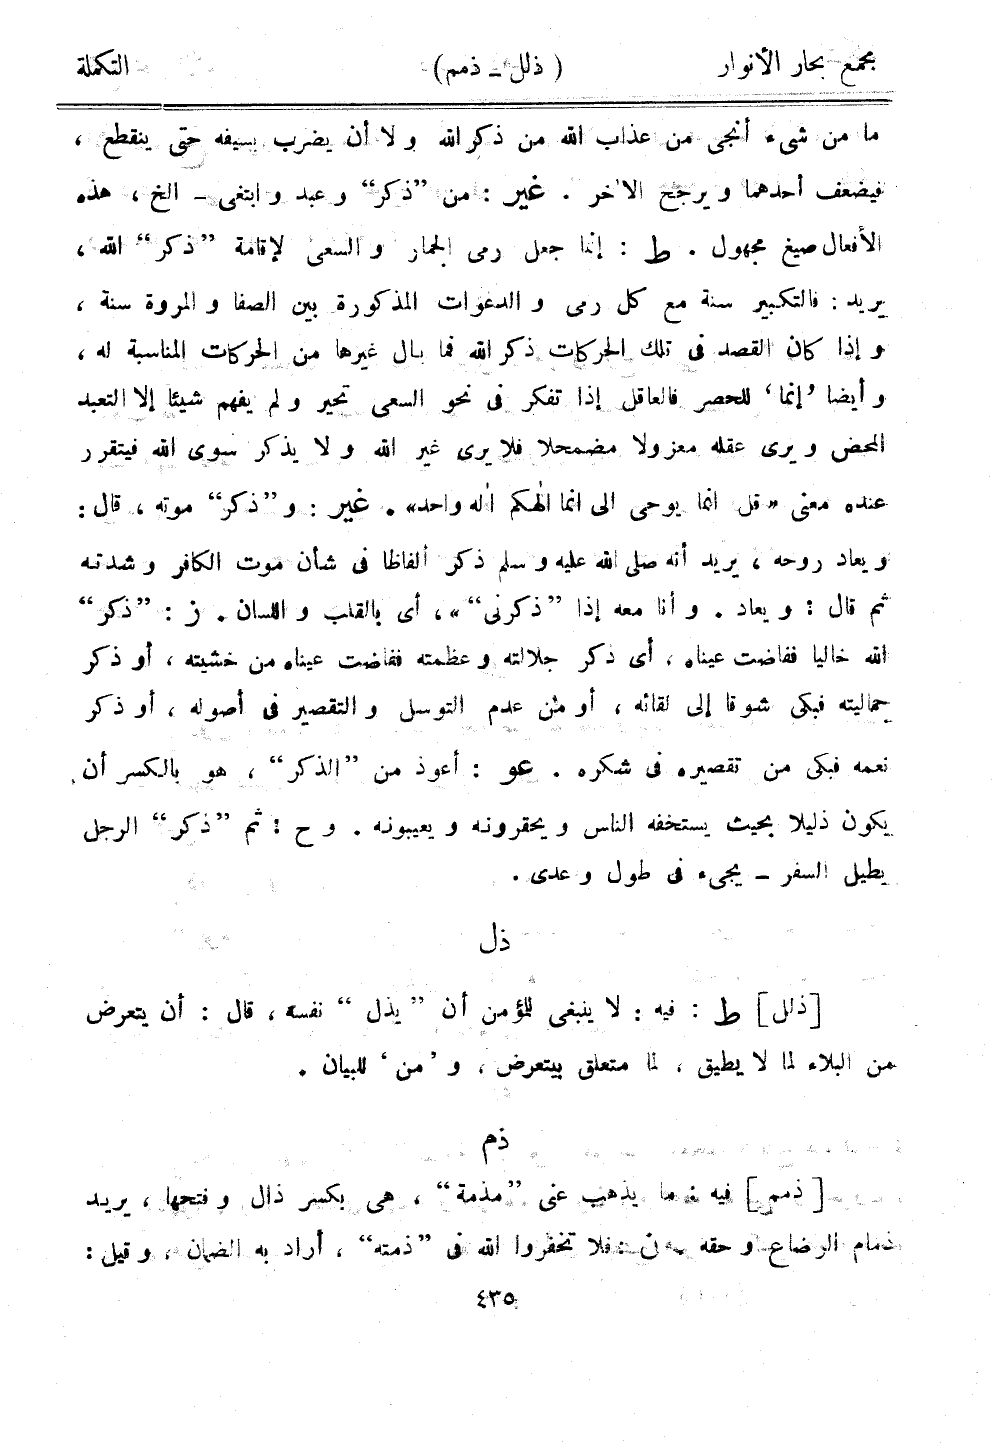 مجمع بحار الأنوار ( ذلل ـ ذمم) التكملة
ما من شيء أنجى من عذاب الله من ذكر الله و لا أن يضرب بسيفه حتى ينقطع ،
فيضعف أحدهما و يرجح الآخر . غير : من ”ذكر“ و عبد و ابتغى ـ الخ ، هذه
الأفعال صيغ مجهول . ط : إنما جعل رمى الجمار و السعى لإقامة ”ذكر“ الله ،
يريد : فالتكبير سنة مع كل رمى و الدعوات المذكورة بين الصفا و المروة سنة ،
و إذا كان القصد فى تلك الحركات ذكر الله فما بال غيرها من الحركات المناسبة له ،
و أيضا ’إنما‘ للحصر فالعاقل إذا تفكر فى نحو السعى تحير و لم يفهم شيئا إلا التعبد
المحض و يرى عقله معزولا مضمحلا فلا يرى غير الله و لا يذكر سوى الله فيتقرر
عنده معنى «قل انما يوحى الى انما الهكم اله واحد» . غير : و ”ذكر“ موته ، قال :
و يعاد روحه ، يريد أنه صلى الله عليه و سلم ذكر ألفاظا فى شأن موت الكافر و شدته
ثم قال : و يعاد . و أنا معه إذا ”ذكرنى“ »، أى بالقلب و اللسان . ز : ”ذكر“
الله خاليا ففاضت عيناه ، أى ذكر جلالته و عظمته ففاضت عيناه من خشيته ، أو ذكر
جماليته فبكى شوقا إلى لقائه ، أو من عدم التوسل و التقصير فى أصوله ، أو ذكر
نعمه فبكى من تقصيره فى شكره . عو : أعوذ من ”الذكر“ ، هو بالكسر أن
يكون ذليلا بحيث يستخفه الناس و يحقرونه و يعيبونه . و ح : ثم ”ذكر“ الرجل
يطيل السفر ـ يجىء فى طول و عدى .
ذل
[ذلل] ط : فيه : لا ينبغى للمؤمن أن ”يذل“ نفسه ، قال : أن يتعرض
من البلاء لما لا يطيق ، لما متعلق بيتعرض ، و ’من‘ للبيان .
ذم
[ذمم] فيه : ما يذهب عنى ”مذمة“ ، هى بكسر ذال و فتحها ، يريد
ذمام الرضاع و حقه . ن : فلا تخفروا الله فى ”ذمته“ ، أراد به الضمان ، و قيل :
٤٣٥